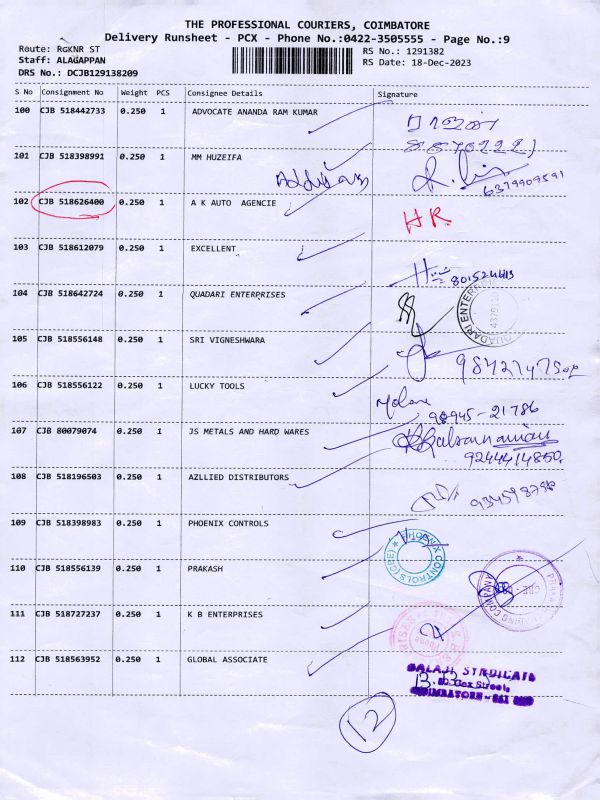 THE PROFESSIONAL COURIERS, COIMBATORE
Delivery Runsheet - PCX - Phone No.:0422-3505555 - Page No.:9
Route: RGKNR ST RS No.: 1291382
Staff: ALAGAPPAN RS Date: 18-Dec-2023
DRS No.: DCJB129138209
S No Consignment No Weight PCS Consignee Details Signature
100 CJB 518442733 0.250 1 ADVOCATE ANANDA RAM KUMAR
101 CJB 518398991 0.250 1 MM HUZEIFA
6379909591
102 CJB 518626400 0.250 1 A K AUTO AGENCIE HR
103 CJB 518612079 0.250 1 EXCELLENT
104 CJB 518642724 0.250 1 QUADARI ENTERPRISES
105 CJB 518556148 0.250 1 SRI VIGNESHWARA
106 CJB 518556122 0.250 1 LUCKY TOOLS
98945-21786
107 CJB 80079074 0.250 1 JS METALS AND HARD WARES
9244414850
108 CJB 518196503 0.250 1 AZLLIED DISTRIBUTORS
109 CJB 518398983 0.250 1 PHOENIX CONTROLS
PHOENIX CONTROLS (CBE)
110 CJB 518556139 0.250 1 PRAKASH
111 CJB 518727237 0.250 1 K B ENTERPRISES
112 CJB 518563952 0.250 1 GLOBAL ASSOCIATE
BALAJI SYNDICATE
12